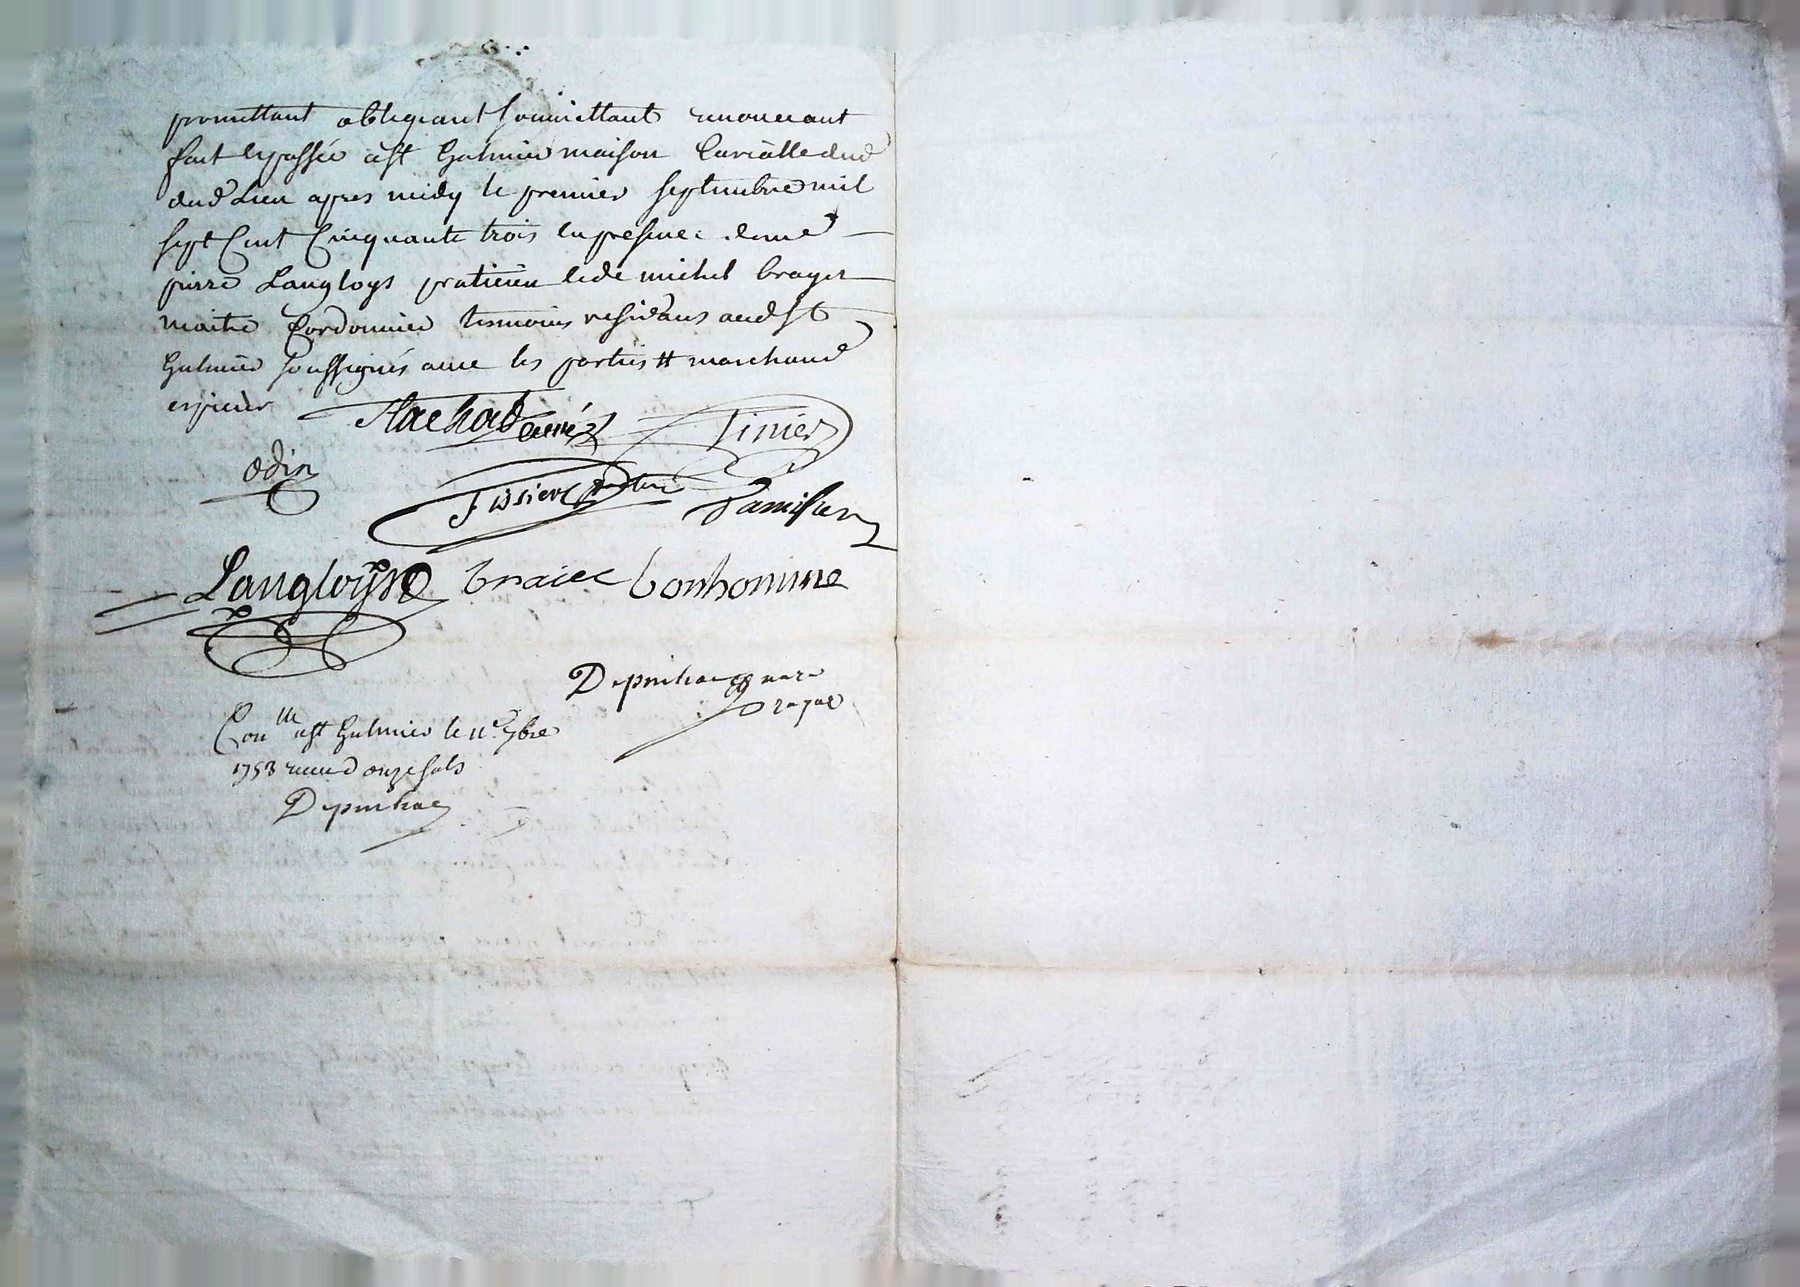 promettant obligeant soumettant renonceant
fait et passé a st Galmier maison Curialle dud
dud Lieu apres midy le premier septembre mil
sept Cent Cinquante trois en presence de me
pierre Langloys praticien et de michel brayer
maitre Cordonnier temoins residans aud st
Galmier soussignés avec les parties # marchand
Flachat curé Tinier
odin
Tissier
Langloys braier bonhomme
Depinhac nore
royal
Conlle a st Galmier le 11e 7bre
1753 receu onze sols
Depinhac